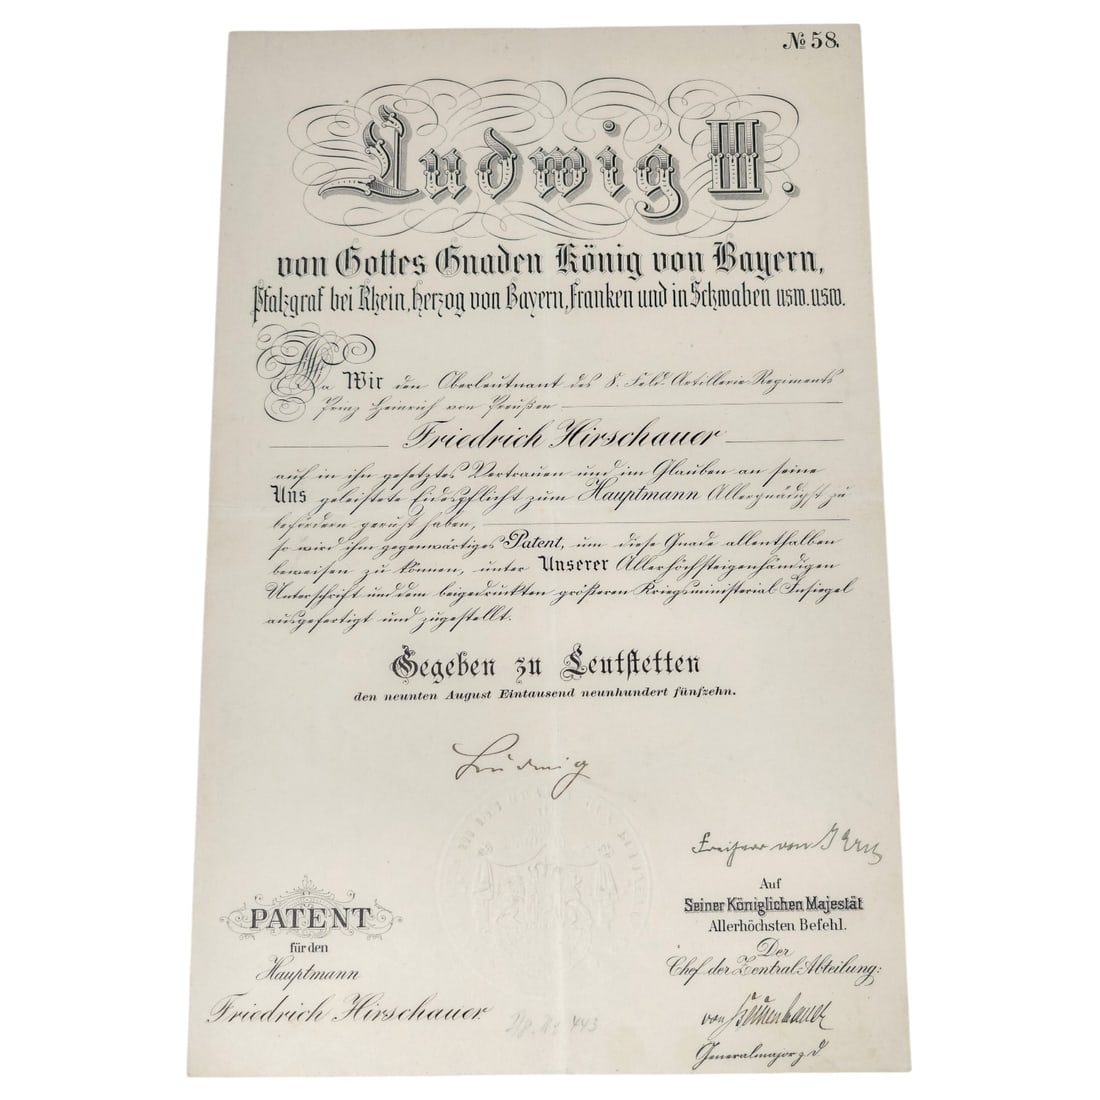 № 58.
Ludwig III.
von Gottes Gnaden König von Bayern,
Pfalzgraf bei Rhein, Herzog von Bayern, Franken und in Schwaben usw. usw.
Da Wir den Oberleutnant des 8. Feld-Artillerie-Regiments
Prinz Heinrich von Preußen
Friedrich Hirschauer
auf in ihn gesetztes Vertrauen und im Glauben an seine
Uns geleistete Eidespflicht zum Hauptmann Allergnädigst zu
befördern geruht haben,
so wird ihm gegenwärtiges Patent, um diese Gnade allenthalben
beweisen zu können, unter Unserer Allerhöchsteigenhändigen
Unterschrift und dem beigedruckten größeren Kriegsministerial-Insiegel
ausgefertigt und zugestellt.
Gegeben zu Leutstetten
den neunten August Eintausend neunhundert fünfzehn.
Ludwig
Freiherr von Kreß
Auf
Seiner Königlichen Majestät
Allerhöchsten Befehl.
Der
Chef der Zentral-Abteilung:
von
Generalmajor z D
PATENT
für den
Hauptmann
Friedrich Hirschauer
443